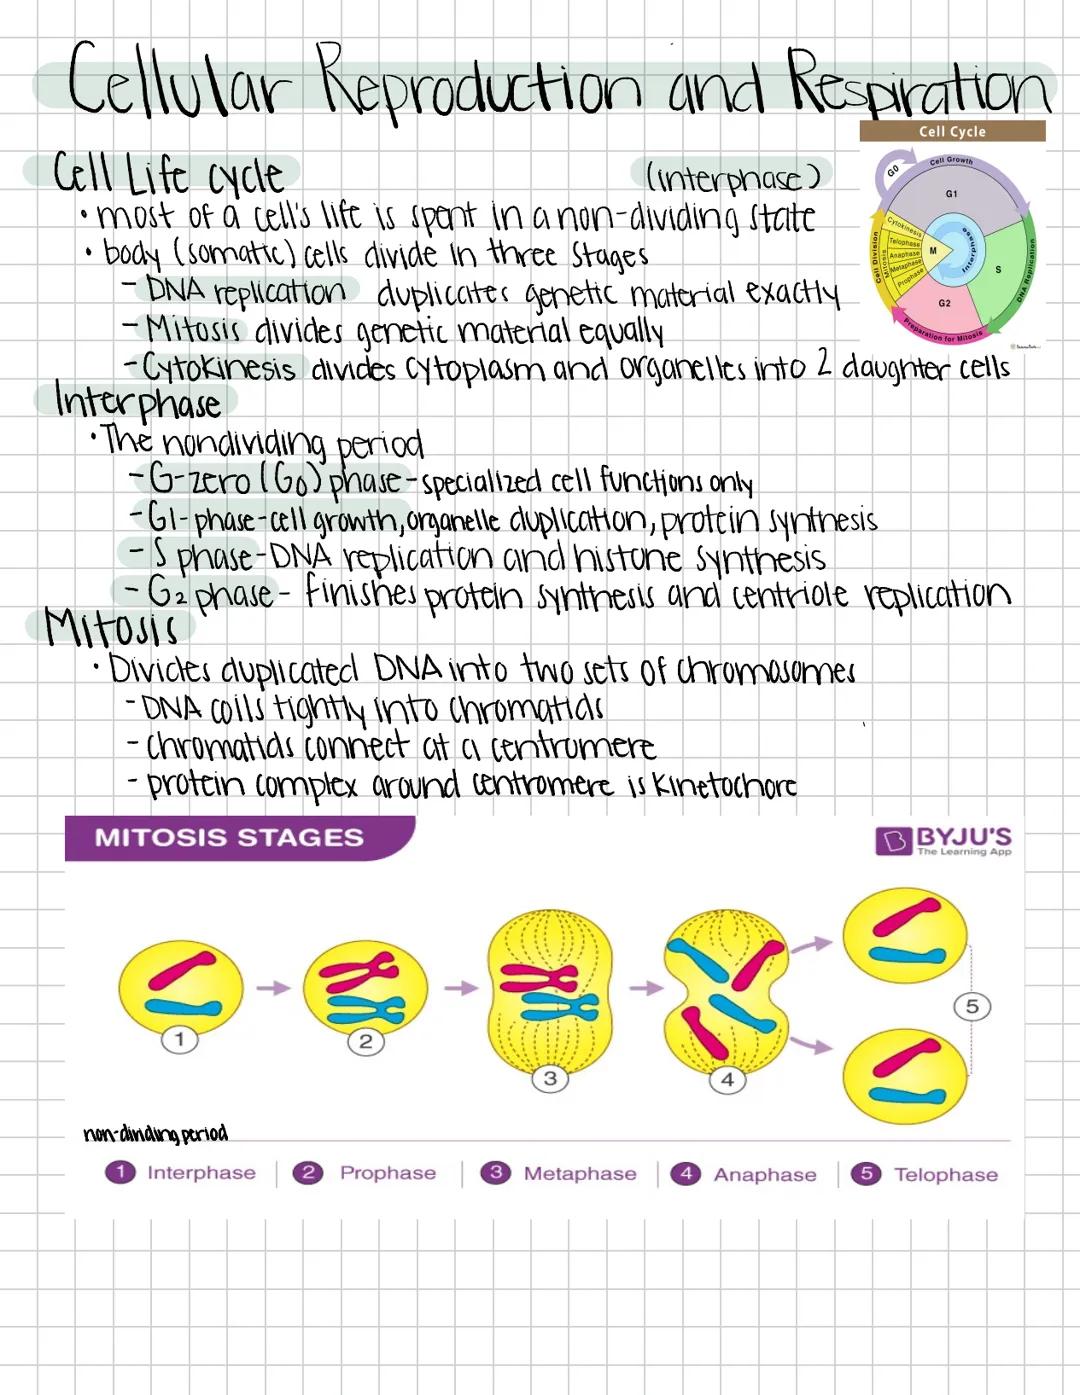 Cellular Reproduction and Respiration
Cell Cycle
Cell Life cycle
(interphase)
• most of a cell's life is spent in a non-dividing state
• body (somatic) cells divide in three stages
- DNA replication duplicates genetic material exactly
- Mitosis divides genetic material equally
- Cytokinesis divides cytoplasm and organelles into 2 daughter cells
G0
Cell Growth
G1
Cytokinesis
Telophase
Anaphase
Metaphase
Prophase
Mitosis
Cell Division
M
Interphase
S
DNA Replication
G2
Preparation for Mitosis
Interphase
• The nondividing period
- G-zero (G0) phase - specialized cell functions only
- G1-phase-cell growth, organelle duplication, protein synthesis
- S phase-DNA replication and histone synthesis
- G2 phase - finishes protein synthesis and centriole replication
Mitosis
• Divides duplicated DNA into two sets of chromosomes
- DNA coils tightly into chromatids
- chromatids connect at a centromere
- protein complex around centromere is kinetochore
MITOSIS STAGES
B BYJU'S
The Learning App
1
2
3
4
5
non-dividing period
1 Interphase
2 Prophase
3 Metaphase
4 Anaphase
5 Telophase